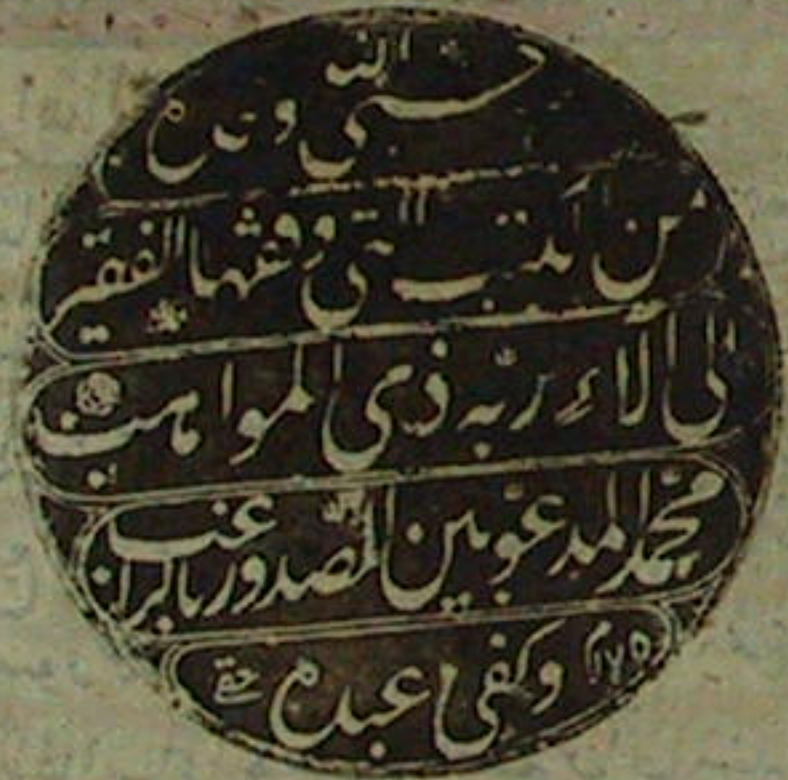 حسبي الله وحده
من الكتب التي وقفها الفقير
الى آلاء ربه ذي المواهب
محمد المدعو بين الصدور بالراغب
وكفى عبده